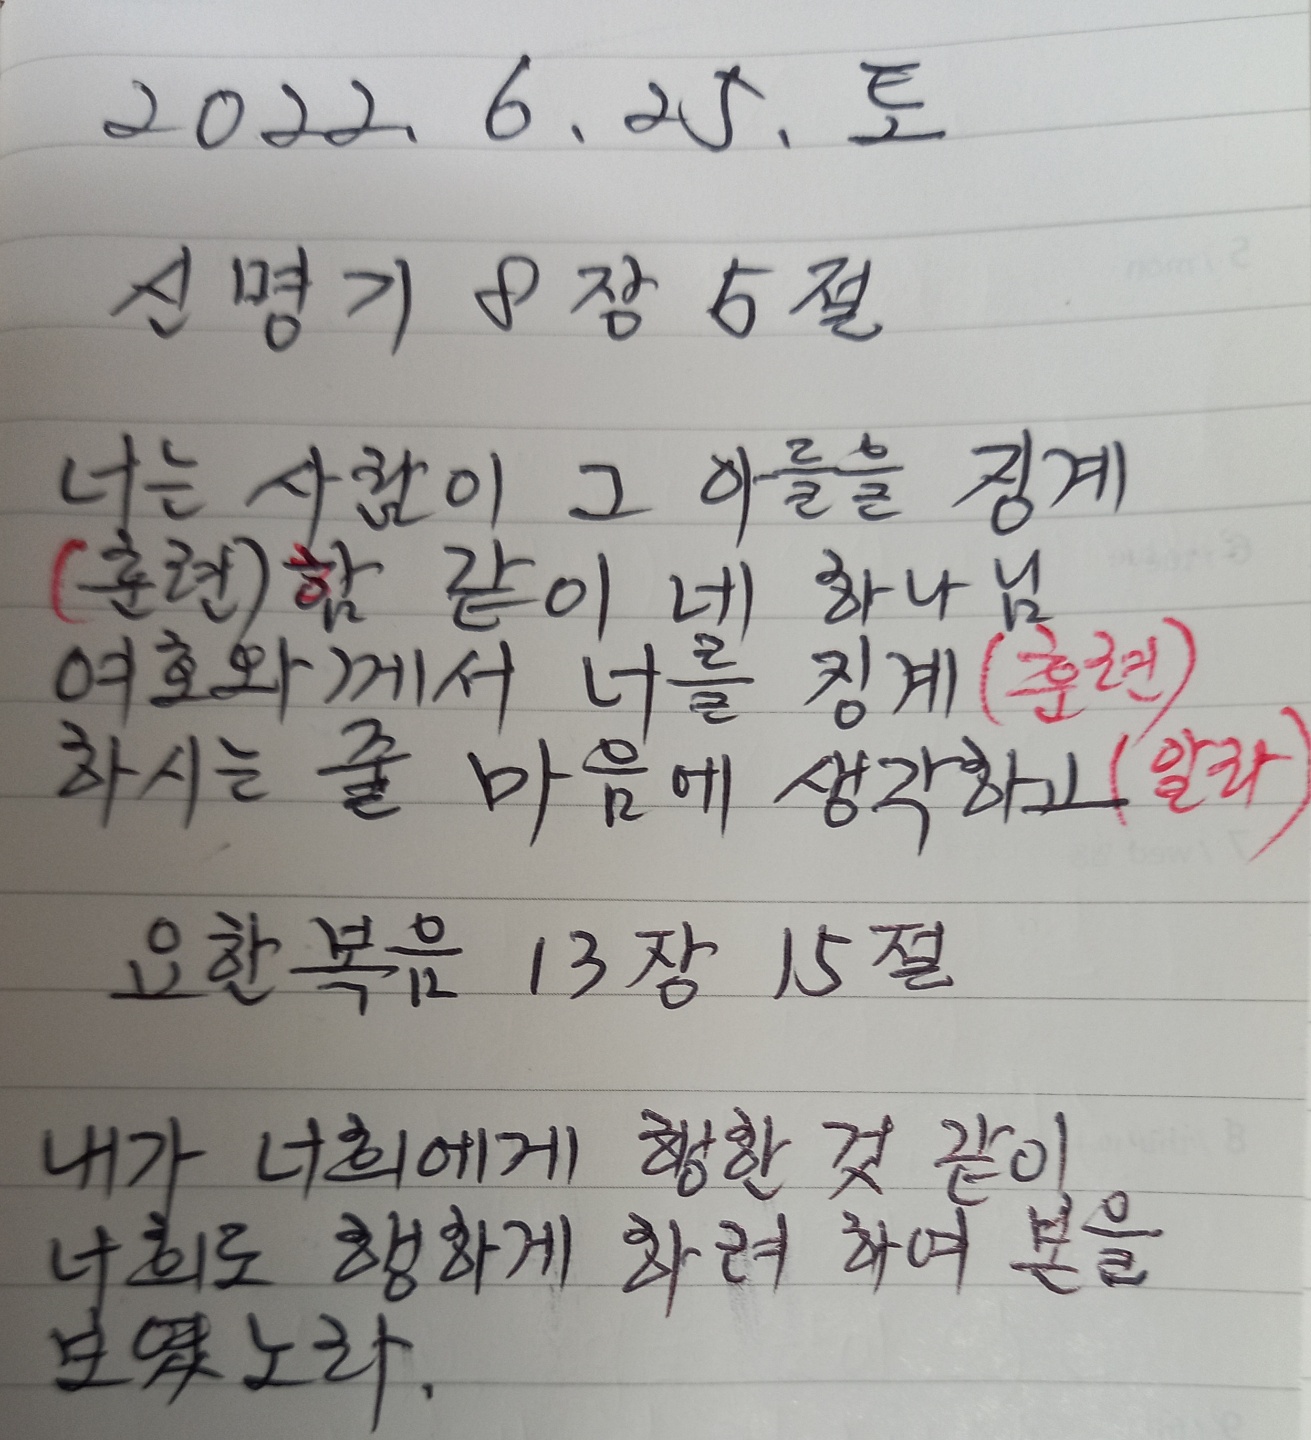 2022. 6. 25. 토
신명기 8장 5절
너는 사람이 그 아들을 징계
(훈련)함 같이 네 하나님
여호와께서 너를 징계(훈련)
하시는 줄 마음에 생각하고(알라)
요한복음 13장 15절
내가 너희에게 행한 것 같이
너희도 행하게 하려 하여 본을
보였노라.